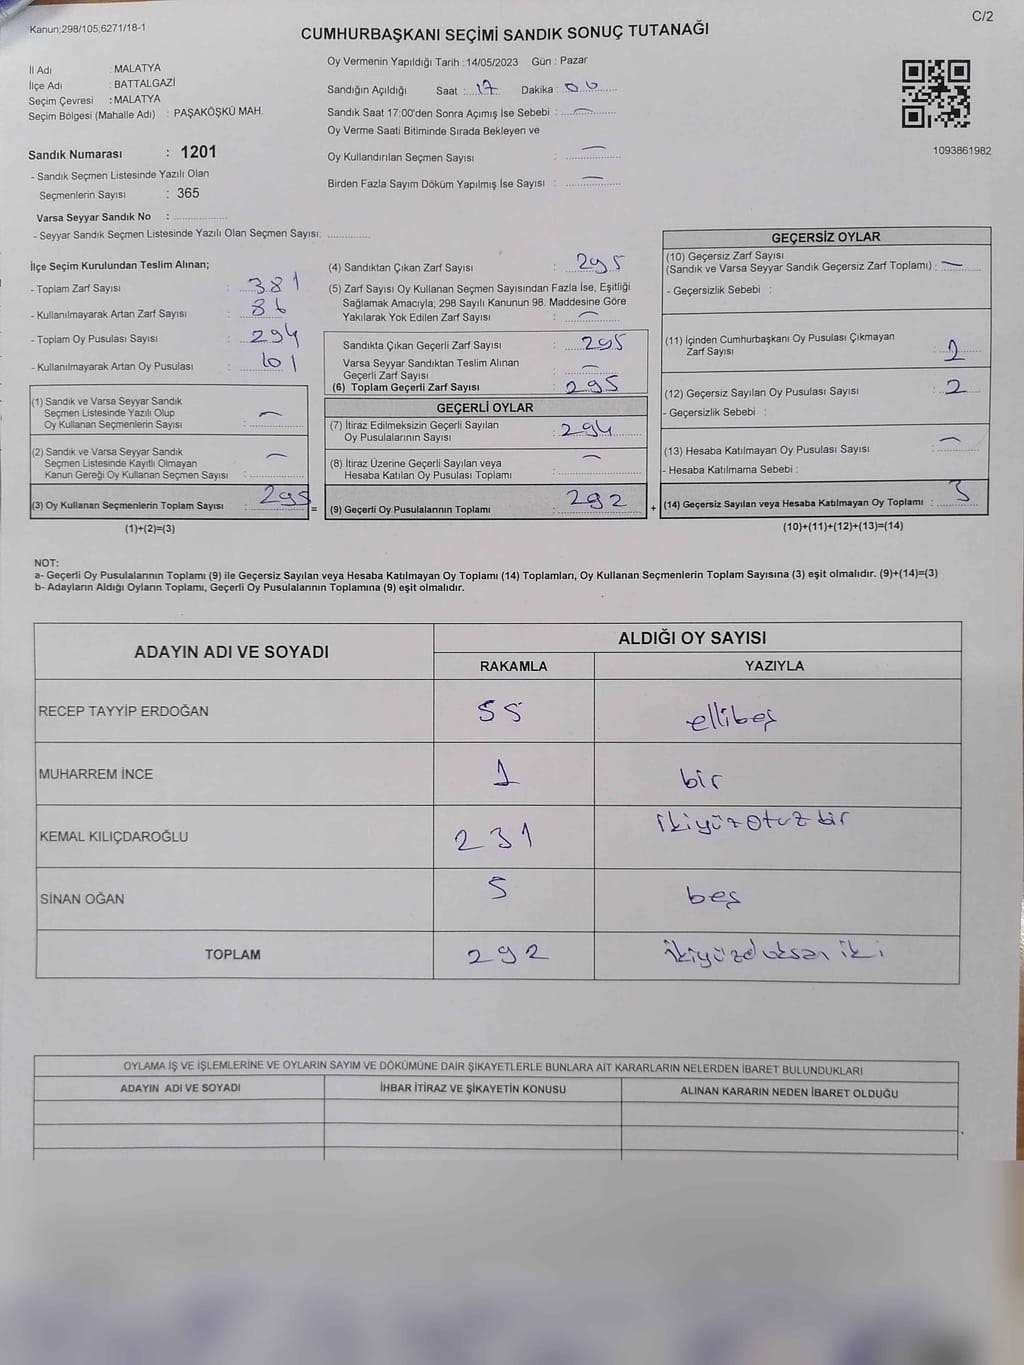 Kanun;298/105;6271/18-1
C/2
CUMHURBAŞKANI SEÇİMİ SANDIK SONUÇ TUTANAĞI
İl Adı : MALATYA
İlçe Adı : BATTALGAZİ
Seçim Çevresi : MALATYA
Seçim Bölgesi (Mahalle Adı) : PAŞAKÖŞKÜ MAH.
Sandık Numarası : 1201
- Sandık Seçmen Listesinde Yazılı Olan
Seçmenlerin Sayısı : 365
Varsa Seyyar Sandık No :
- Seyyar Sandık Seçmen Listesinde Yazılı Olan Seçmen Sayısı:
Oy Vermenin Yapıldığı Tarih : 14/05/2023 Gün : Pazar
Sandığın Açıldığı Saat : 17 Dakika : 00
Sandık Saat 17:00'den Sonra Açımış İse Sebebi : —
Oy Verme Saati Bitiminde Sırada Bekleyen ve
Oy Kullandırılan Seçmen Sayısı : —
Birden Fazla Sayım Döküm Yapılmış İse Sayısı : —
1093861982
İlçe Seçim Kurulundan Teslim Alınan;
- Toplam Zarf Sayısı : 381
- Kullanılmayarak Artan Zarf Sayısı : 86
- Toplam Oy Pusulası Sayısı : 294
- Kullanılmayarak Artan Oy Pusulası : 101
(1) Sandık ve Varsa Seyyar Sandık
Seçmen Listesinde Yazılı Olup
Oy Kullanan Seçmenlerin Sayısı : —
(2) Sandık ve Varsa Seyyar Sandık
Seçmen Listesinde Kayıtlı Olmayan
Kanun Gereği Oy Kullanan Seçmen Sayısı : —
(3) Oy Kullanan Seçmenlerin Toplam Sayısı : 295
(1)+(2)=(3)
(4) Sandıktan Çıkan Zarf Sayısı : 295
(5) Zarf Sayısı Oy Kullanan Seçmen Sayısından Fazla İse, Eşitliği
Sağlamak Amacıyla; 298 Sayılı Kanunun 98. Maddesine Göre
Yakılarak Yok Edilen Zarf Sayısı : —
Sandıkta Çıkan Geçerli Zarf Sayısı : 295
Varsa Seyyar Sandıktan Teslim Alınan
Geçerli Zarf Sayısı : —
(6) Toplam Geçerli Zarf Sayısı : 295
GEÇERLİ OYLAR
(7) İtiraz Edilmeksizin Geçerli Sayılan
Oy Pusulalarının Sayısı : 294
(8) İtiraz Üzerine Geçerli Sayılan veya
Hesaba Katılan Oy Pusulası Toplamı : —
= (9) Geçerli Oy Pusulalarının Toplamı : 292 +
GEÇERSİZ OYLAR
(10) Geçersiz Zarf Sayısı
(Sandık ve Varsa Seyyar Sandık Geçersiz Zarf Toplamı) : —
- Geçersizlik Sebebi :
(11) İçinden Cumhurbaşkanı Oy Pusulası Çıkmayan
Zarf Sayısı : 1
(12) Geçersiz Sayılan Oy Pusulası Sayısı : 2
- Geçersizlik Sebebi :
(13) Hesaba Katılmayan Oy Pusulası Sayısı : —
- Hesaba Katılmama Sebebi :
(14) Geçersiz Sayılan veya Hesaba Katılmayan Oy Toplamı : 3
(10)+(11)+(12)+(13)=(14)
NOT:
a- Geçerli Oy Pusulalarının Toplamı (9) ile Geçersiz Sayılan veya Hesaba Katılmayan Oy Toplamı (14) Toplamları, Oy Kullanan Seçmenlerin Toplam Sayısına (3) eşit olmalıdır. (9)+(14)=(3)
b- Adayların Aldığı Oyların Toplamı, Geçerli Oy Pusulalarının Toplamına (9) eşit olmalıdır.
ADAYIN ADI VE SOYADI ALDIĞI OY SAYISI
RAKAMLA YAZIYLA
RECEP TAYYİP ERDOĞAN 55 ellibeş
MUHARREM İNCE 1 bir
KEMAL KILIÇDAROĞLU 231 ikiyüzotuzbir
SİNAN OĞAN 5 beş
TOPLAM 292 ikiyüzdoksan iki
OYLAMA İŞ VE İŞLEMLERİNE VE OYLARIN SAYIM VE DÖKÜMÜNE DAİR ŞİKAYETLERLE BUNLARA AİT KARARLARIN NELERDEN İBARET BULUNDUKLARI
ADAYIN ADI VE SOYADI İHBAR İTİRAZ VE ŞİKAYETİN KONUSU ALINAN KARARIN NEDEN İBARET OLDUĞU